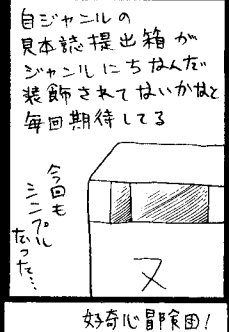 自ジャンルの
見本誌提出箱が
ジャンルにちなんだ
装飾されてないかなと
毎回期待してる
今回も
シンプル
だった…
ヌ
好奇心冒険団!